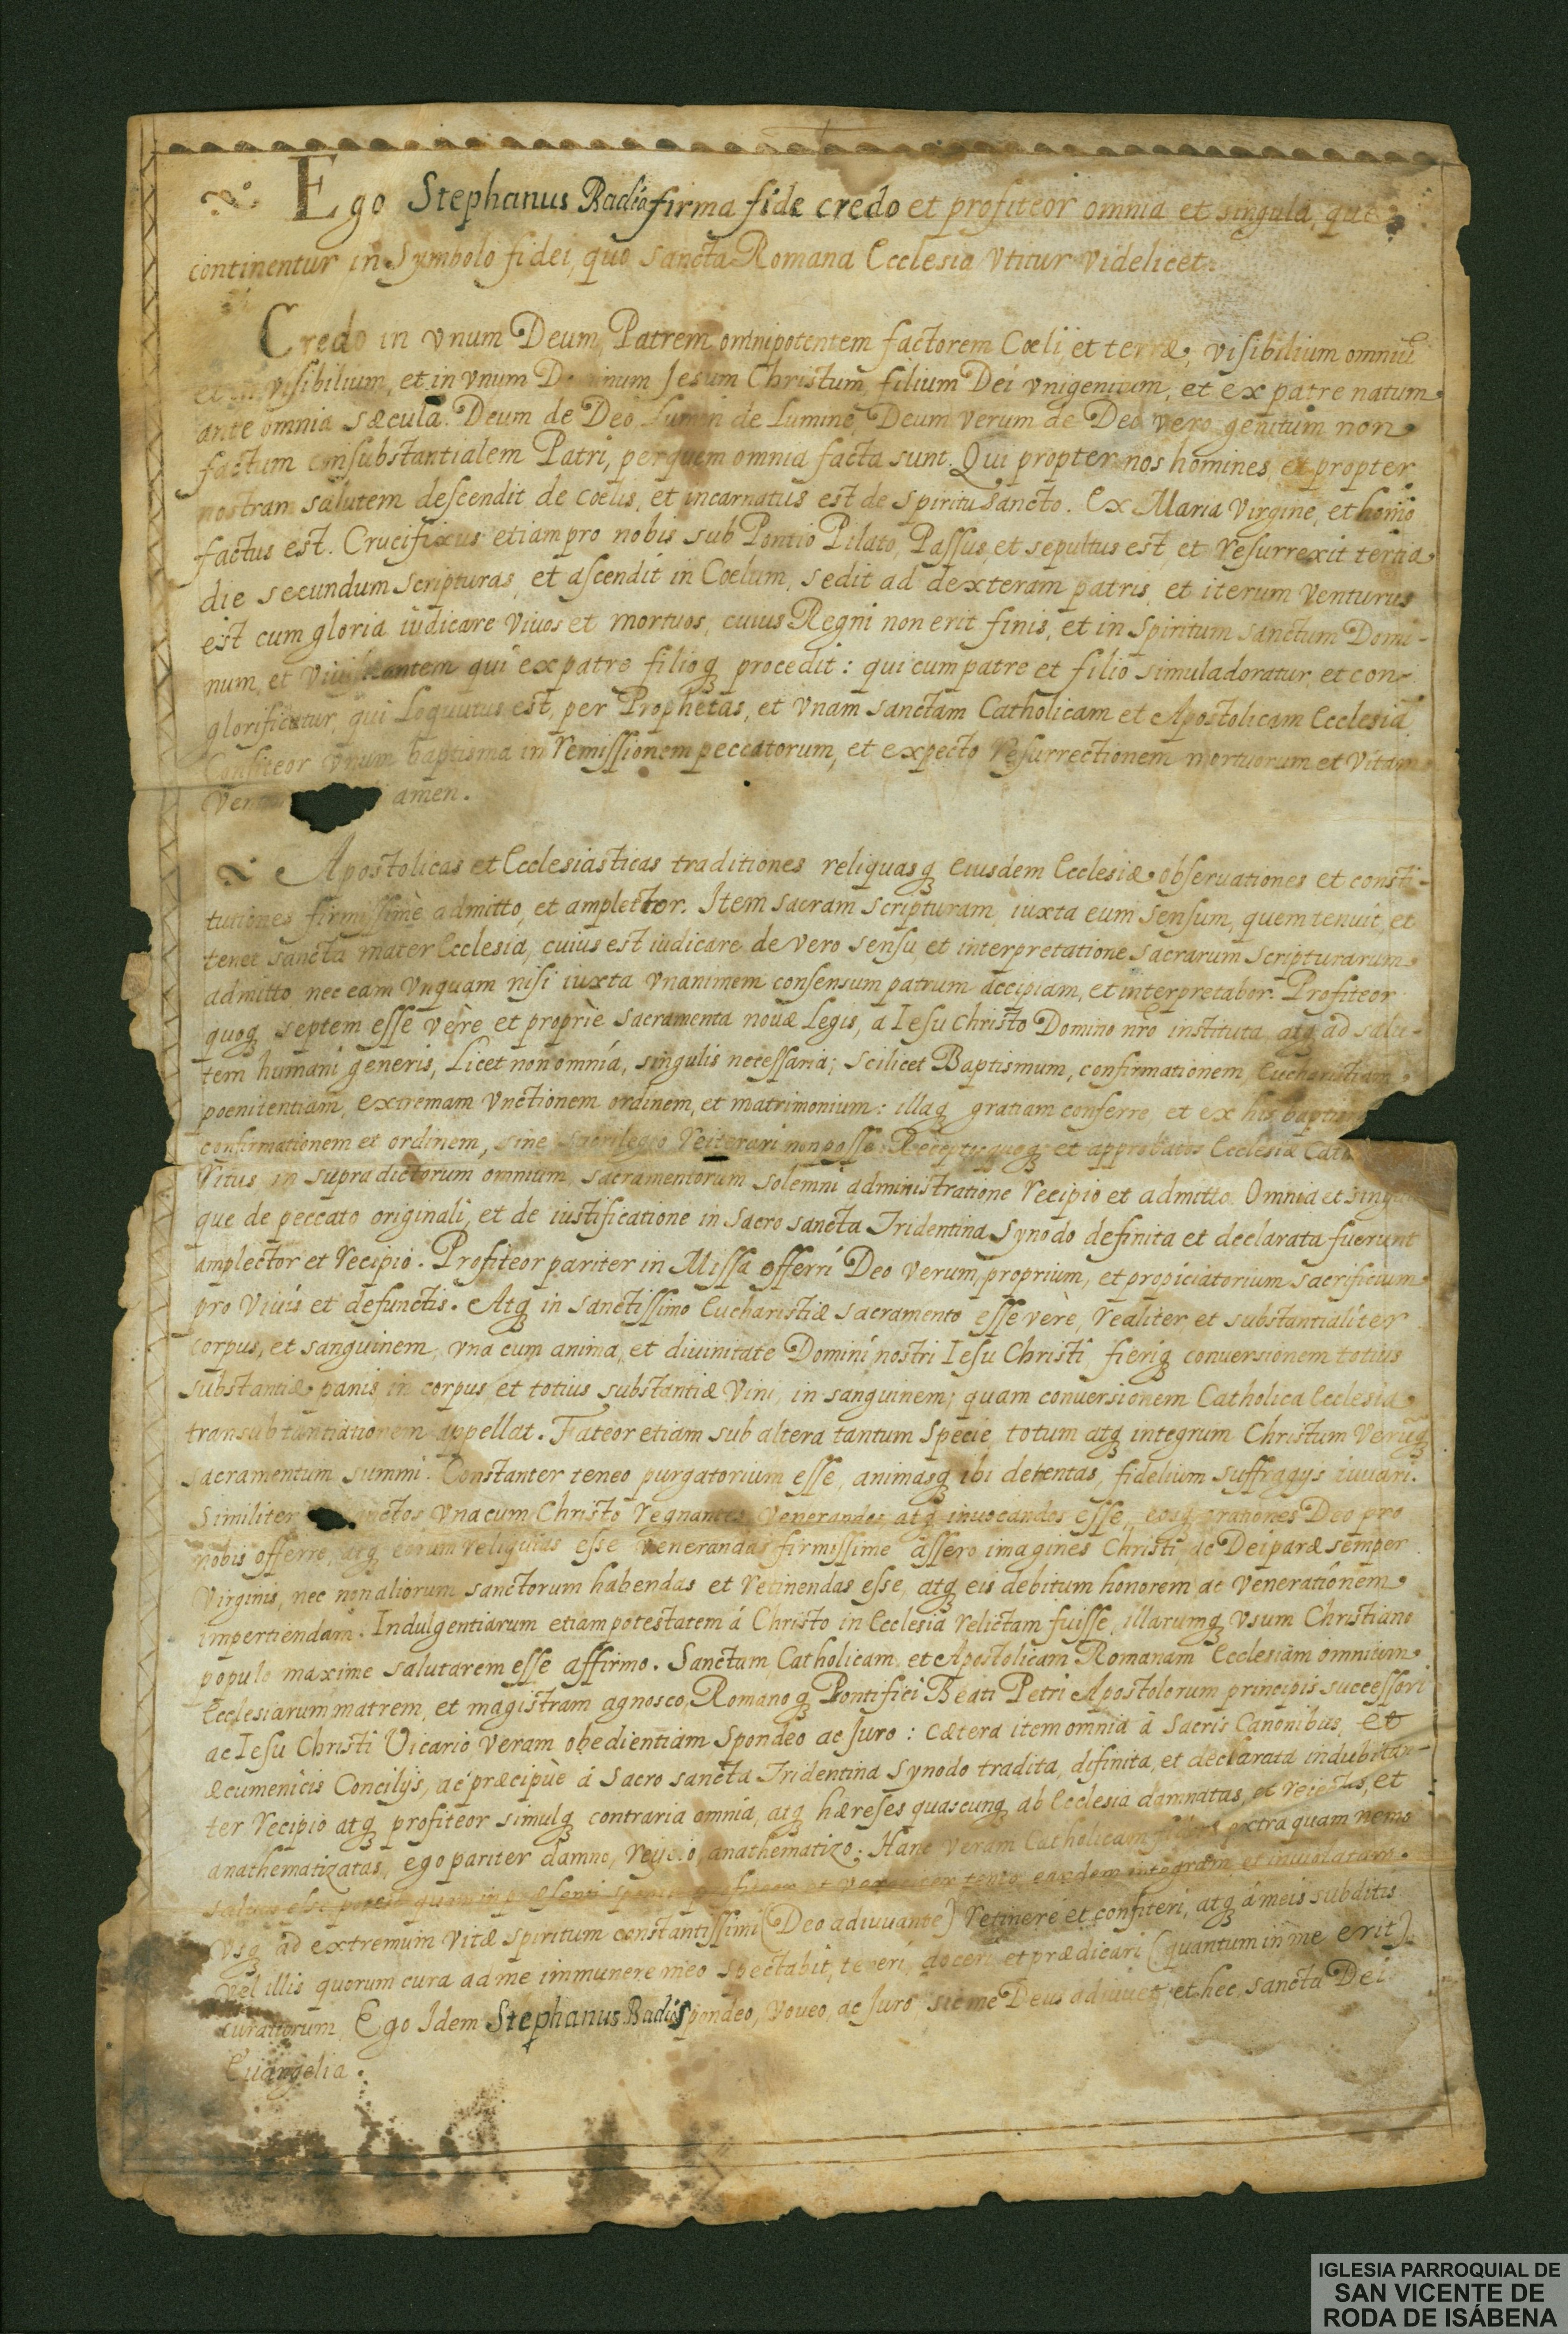 Ego Stephanus Badia firma fide credo et profiteor omnia et singula, que
continentur in symbolo fidei, quo sancta Romana Ecclesia vtitur videlicet.
Credo in vnum Deum Patrem omnipotentem factorem Cœli, et terræ, visibilium omniũ
et in visibilium, et in vnum Dominum Jesum Christum filium Dei vnigenitum, et ex patre natum
ante omnia sæcula. Deum de Deo, Lumen de Lumine, Deum verum de Deo vero genitum non
factum consubstantialem Patri, per quem omnia facta sunt. Qui propter nos homines, et propter
nostram salutem descendit de cœlis, et incarnatus est de spiritu sancto. Ex Maria Virgine, et homo
factus est. Crucifixus etiam pro nobis sub Pontio Pilato, Passus, et sepultus est, et resurrexit tertia
die secundum scripturas, et ascendit in Cœlum, sedit ad dexteram patris, et iterum venturus
est cum gloria iudicare viuos et mortuos, cuius Regni non erit finis, et in spiritum sanctum Domi-
num, et viuificantem qui ex patre filioq procedit: qui cum patre et filio simul adoratur, et con-
glorificatur, qui loquutus est, per Prophetas, et vnam sanctam Catholicam et Apostolicam Ecclesiã
Confiteor vnum baptisma in remissionem peccatorum, et expecto resurrectionem mortuorum et vitam
amen.
Apostolicas et Ecclesiasticas traditiones reliquasq eiusdem Ecclesiæ obseruationes et consti-
tutiones firmissimè admitto, et amplector. Item sacram scripturam iuxta eum sensum, quem tenuit et
tenet sancta mater Ecclesia, cuius est iudicare de vero sensu et interpretatione sacrarum scripturarum
admitto nec eam vnquam nisi iuxta vnanimem consensum patrum accipiam, et interpretabor. Profiteor
quoq septem esse vère et propriè sacramenta nouæ Legis, a Iesu Christo Domino nr̃o instituta atq ad salu-
tem humani generis, Licet non omnia, singulis necessaria; scilicet Baptismum, confirmationem, Eucharistiam
poenitentiam, extremam vnctionem ordinem, et matrimonium: illaq gratiam conferre, et ex his
confirmationem et ordinem, sine sacrilegio reiterari non posse. Receptos quoq et approbatos Ecclesiæ
ritus in supradictorum omnium sacramentorum solemni administratione recipio et admitto. Omnia et
que de peccato originali, et de iustificatione in sacro sancta Tridentina Synodo definita et declarata fuerunt
amplector et recipio. Profiteor pariter in Missa offerri Deo verum, proprium, et propiciatorium sacrificium
pro viuis et defunctis. Atq in sanctissimo Eucharistiæ sacramento esse vère, realiter et substantialiter
corpus, et sanguinem vna cum anima, et diuinitate Domini nostri Iesu Christi, fieriq conuersionem totius
substantiæ panis in corpus et totius substantiæ vini in sanguinem; quam conuersionem Catholica Ecclesia
transubstantiationem appellat. Fateor etiam sub altera tantum specie totum atq integrum Christum verũq
sacramentum summi. Constanter teneo purgatorium esse, animasq ibi detentas, fidelium suffragijs iuuari.
Similiter vna cum Christo regnantes venerandos atq inuocandos esse, eosq orationes Deo pro
nobis offerre, atq eorum reliquias esse venerandas firmissime assero imagines Christi, ac Deiparæ semper
Virginis, nec non aliorum sanctorum habendas et retinendas esse, atq eis debitum honorem ac venerationem
impertiendam. Indulgentiarum etiam potestatem á Christo in Ecclesia relictam fuisse, illarumq vsum Christiano
populo maxime salutarem esse affirmo. Sanctam, Catholicam, et Apostolicam Romanam Ecclesiam omnium
Ecclesiarum matrem, et magistram agnosco, Romanoq Pontifici Beati Petri Apostolorum principis successori
ac Iesu Christi Vicario veram obedientiam spondeo ac Juro: cætera item omnia á Sacris Canonibus, et
æcumenicis Concilijs, ac præcipuè á Sacro sancta Tridentina Synodo tradita, difinita, et declarata indubitan-
ter recipio atq profiteor simulq contraria omnia, atq hæreses quascunq ab Ecclesia damnatas, et reiectas, et
anathematizatas, ego pariter damno, reijcio, anathematizo. Hanc veram Catholicam fidem extra quam nemo
saluus esse potest quam in præsenti sponte profiteor et veraciter teneo, eandem integram et inuiolatam
vsq ad extremum vitæ spiritum constantissimi (Deo adiuuante) retinere et confiteri, atq á meis subditis
vel illis quorum cura ad me in munere meo spectabit, teneri, doceri et prædicari (quantum in me erit)
curaturum, Ego Idem Stephanus Badia Spondeo, voueo, ac Juro sic me Deus adiuuet, et hec sancta Dei
Euangelia.
IGLESIA PARROQUIAL DE
SAN VICENTE DE
RODA DE ISÁBENA